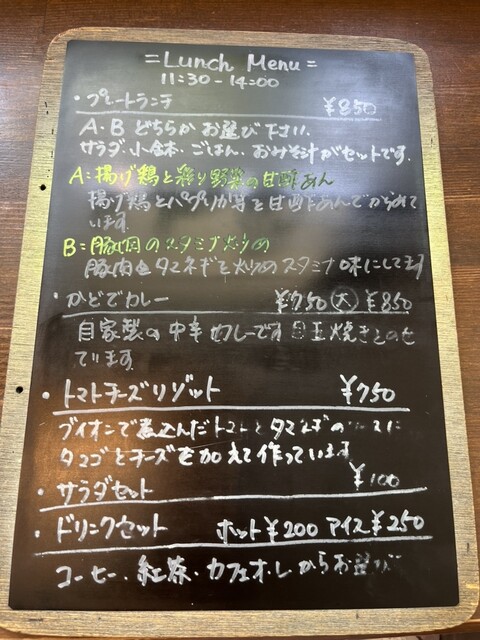 =Lunch Menu=
11:30-14:00
・プレートランチ ¥850
A・B どちらか お選び下さい。
サラダ、小鉢・ごはん、おみそ汁がセットです。
A:揚げ鶏と彩り野菜の甘酢あん
揚げ鶏とパプリカ等を甘酢あんでからめて
います。
B:豚肉のスタミナ炒め
豚肉とタマネギを炒めスタミナ味にしてます
・かどでカレー ¥750 大 ¥850
自家製の中辛カレーです 目玉焼きとのせ
ています
・トマトチーズリゾット ¥750
ブイオンで煮込んだトマトとタマネギの ースに
タマゴとチーズを加えて作っています
・サラダセット ¥100
・ドリンクセット ホット¥200 アイス¥250
コーヒー・紅茶・カフェオ・レからお選び